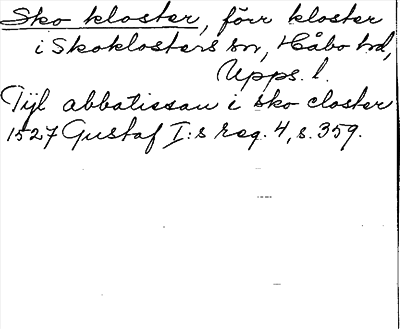 Sko kloster, förr kloster
i Skoklosters sn, Håbo hd,
Upps. l.
Tijl abbatissan i sko closter
1527 Gustaf I:s reg. 4, s. 359.